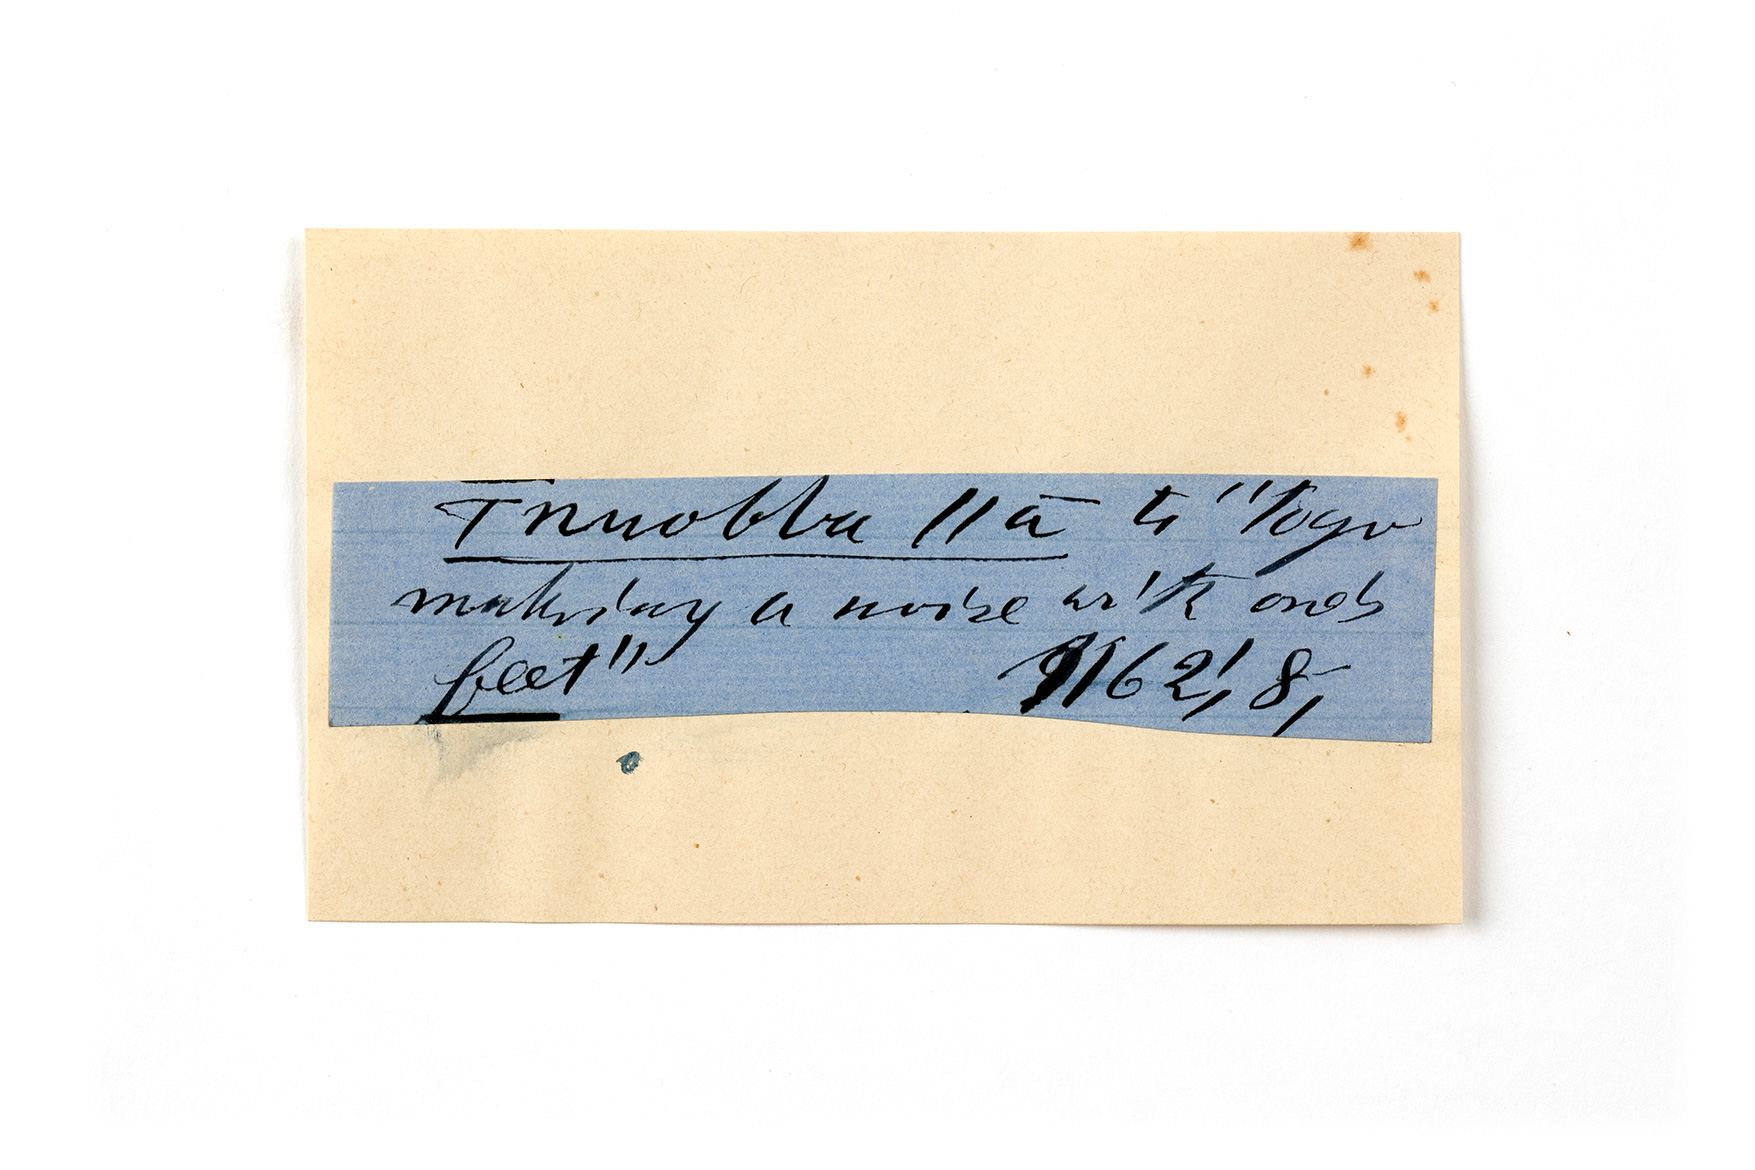 Tnuobba llā to "to go
making a noise with one's
feet" 1162, 8,